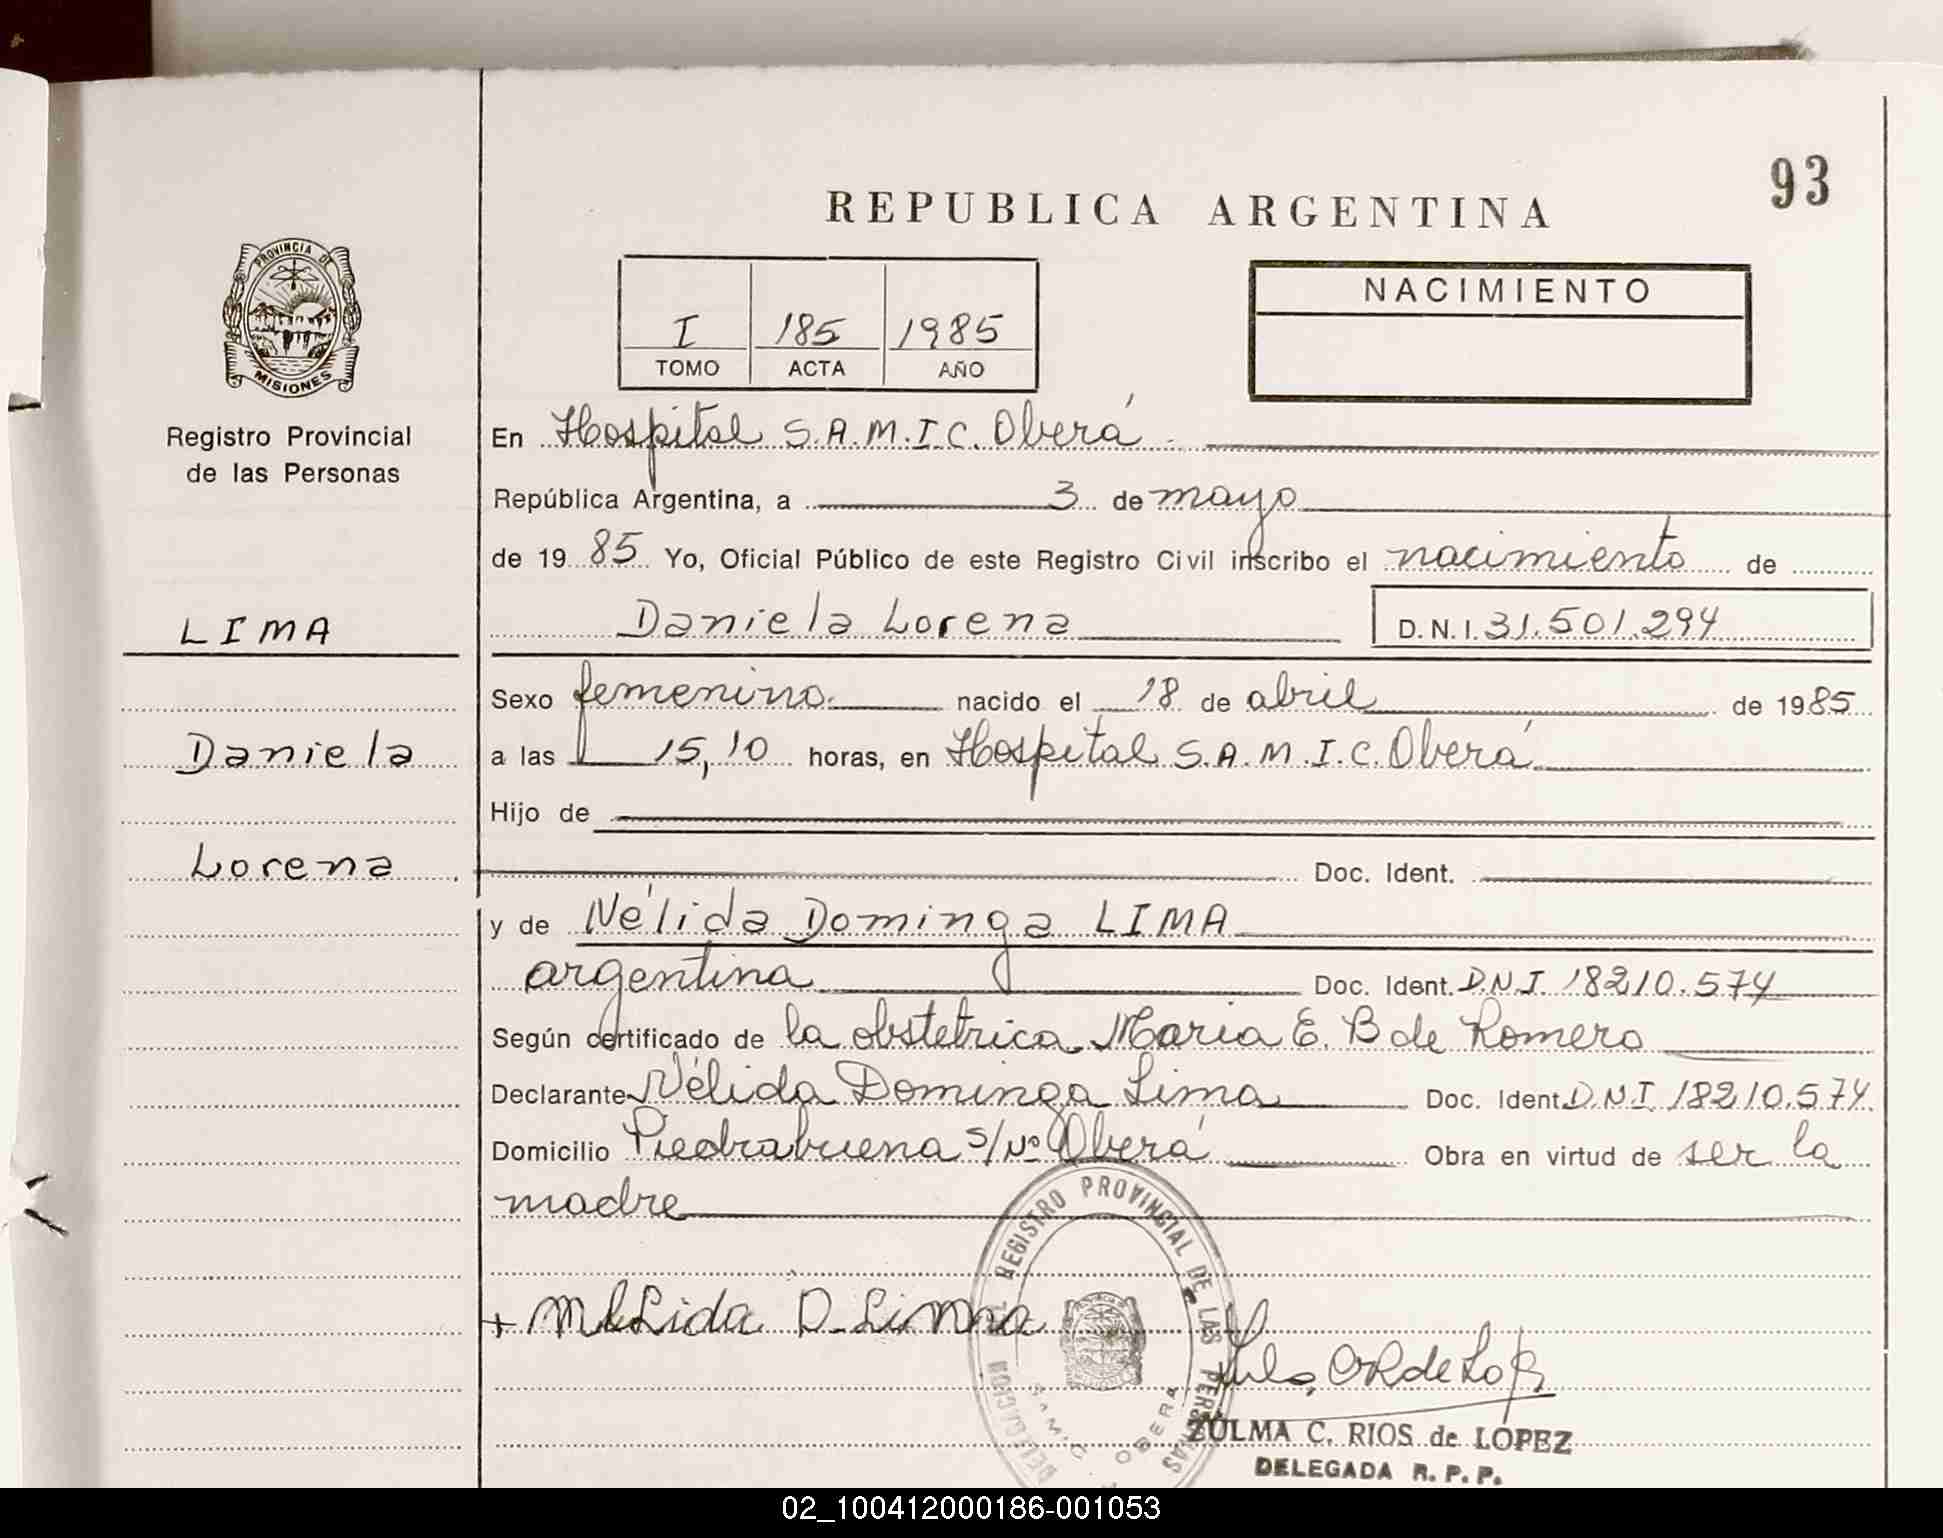 93
REPUBLICA ARGENTINA
PROVINCIA DE
MISIONES
Registro Provincial
de las Personas
I 185 1985
TOMO ACTA AÑO
NACIMIENTO
En Hospital S.A.M.I.C. Oberá
República Argentina, a 3 de mayo
de 1985 Yo, Oficial Público de este Registro Civil inscribo el nacimiento de
LIMA
Daniela Lorena D.N.I. 31.501.294
Sexo femenino nacido el 18 de abril de 1985
Daniela
a las 15,10 horas, en Hospital S.A.M.I.C. Oberá
Hijo de
Lorena
Doc. Ident.
y de Nélida Dominga LIMA
argentina Doc. Ident. D.N.I. 18210.574
Según certificado de la obstetrica Maria E. B de Romero
Declarante Nélida Dominga Lima Doc. Ident. D.N.I. 18210.574
Domicilio Piedrabuena s/nº Oberá Obra en virtud de ser la
madre
REGISTRO PROVINCIAL DE LAS PERSONAS
DELEGACION
S.A.M.I.C. OBERA
ZULMA C. RIOS de LÓPEZ
DELEGADA R.P.P.
02_100412000186-001053